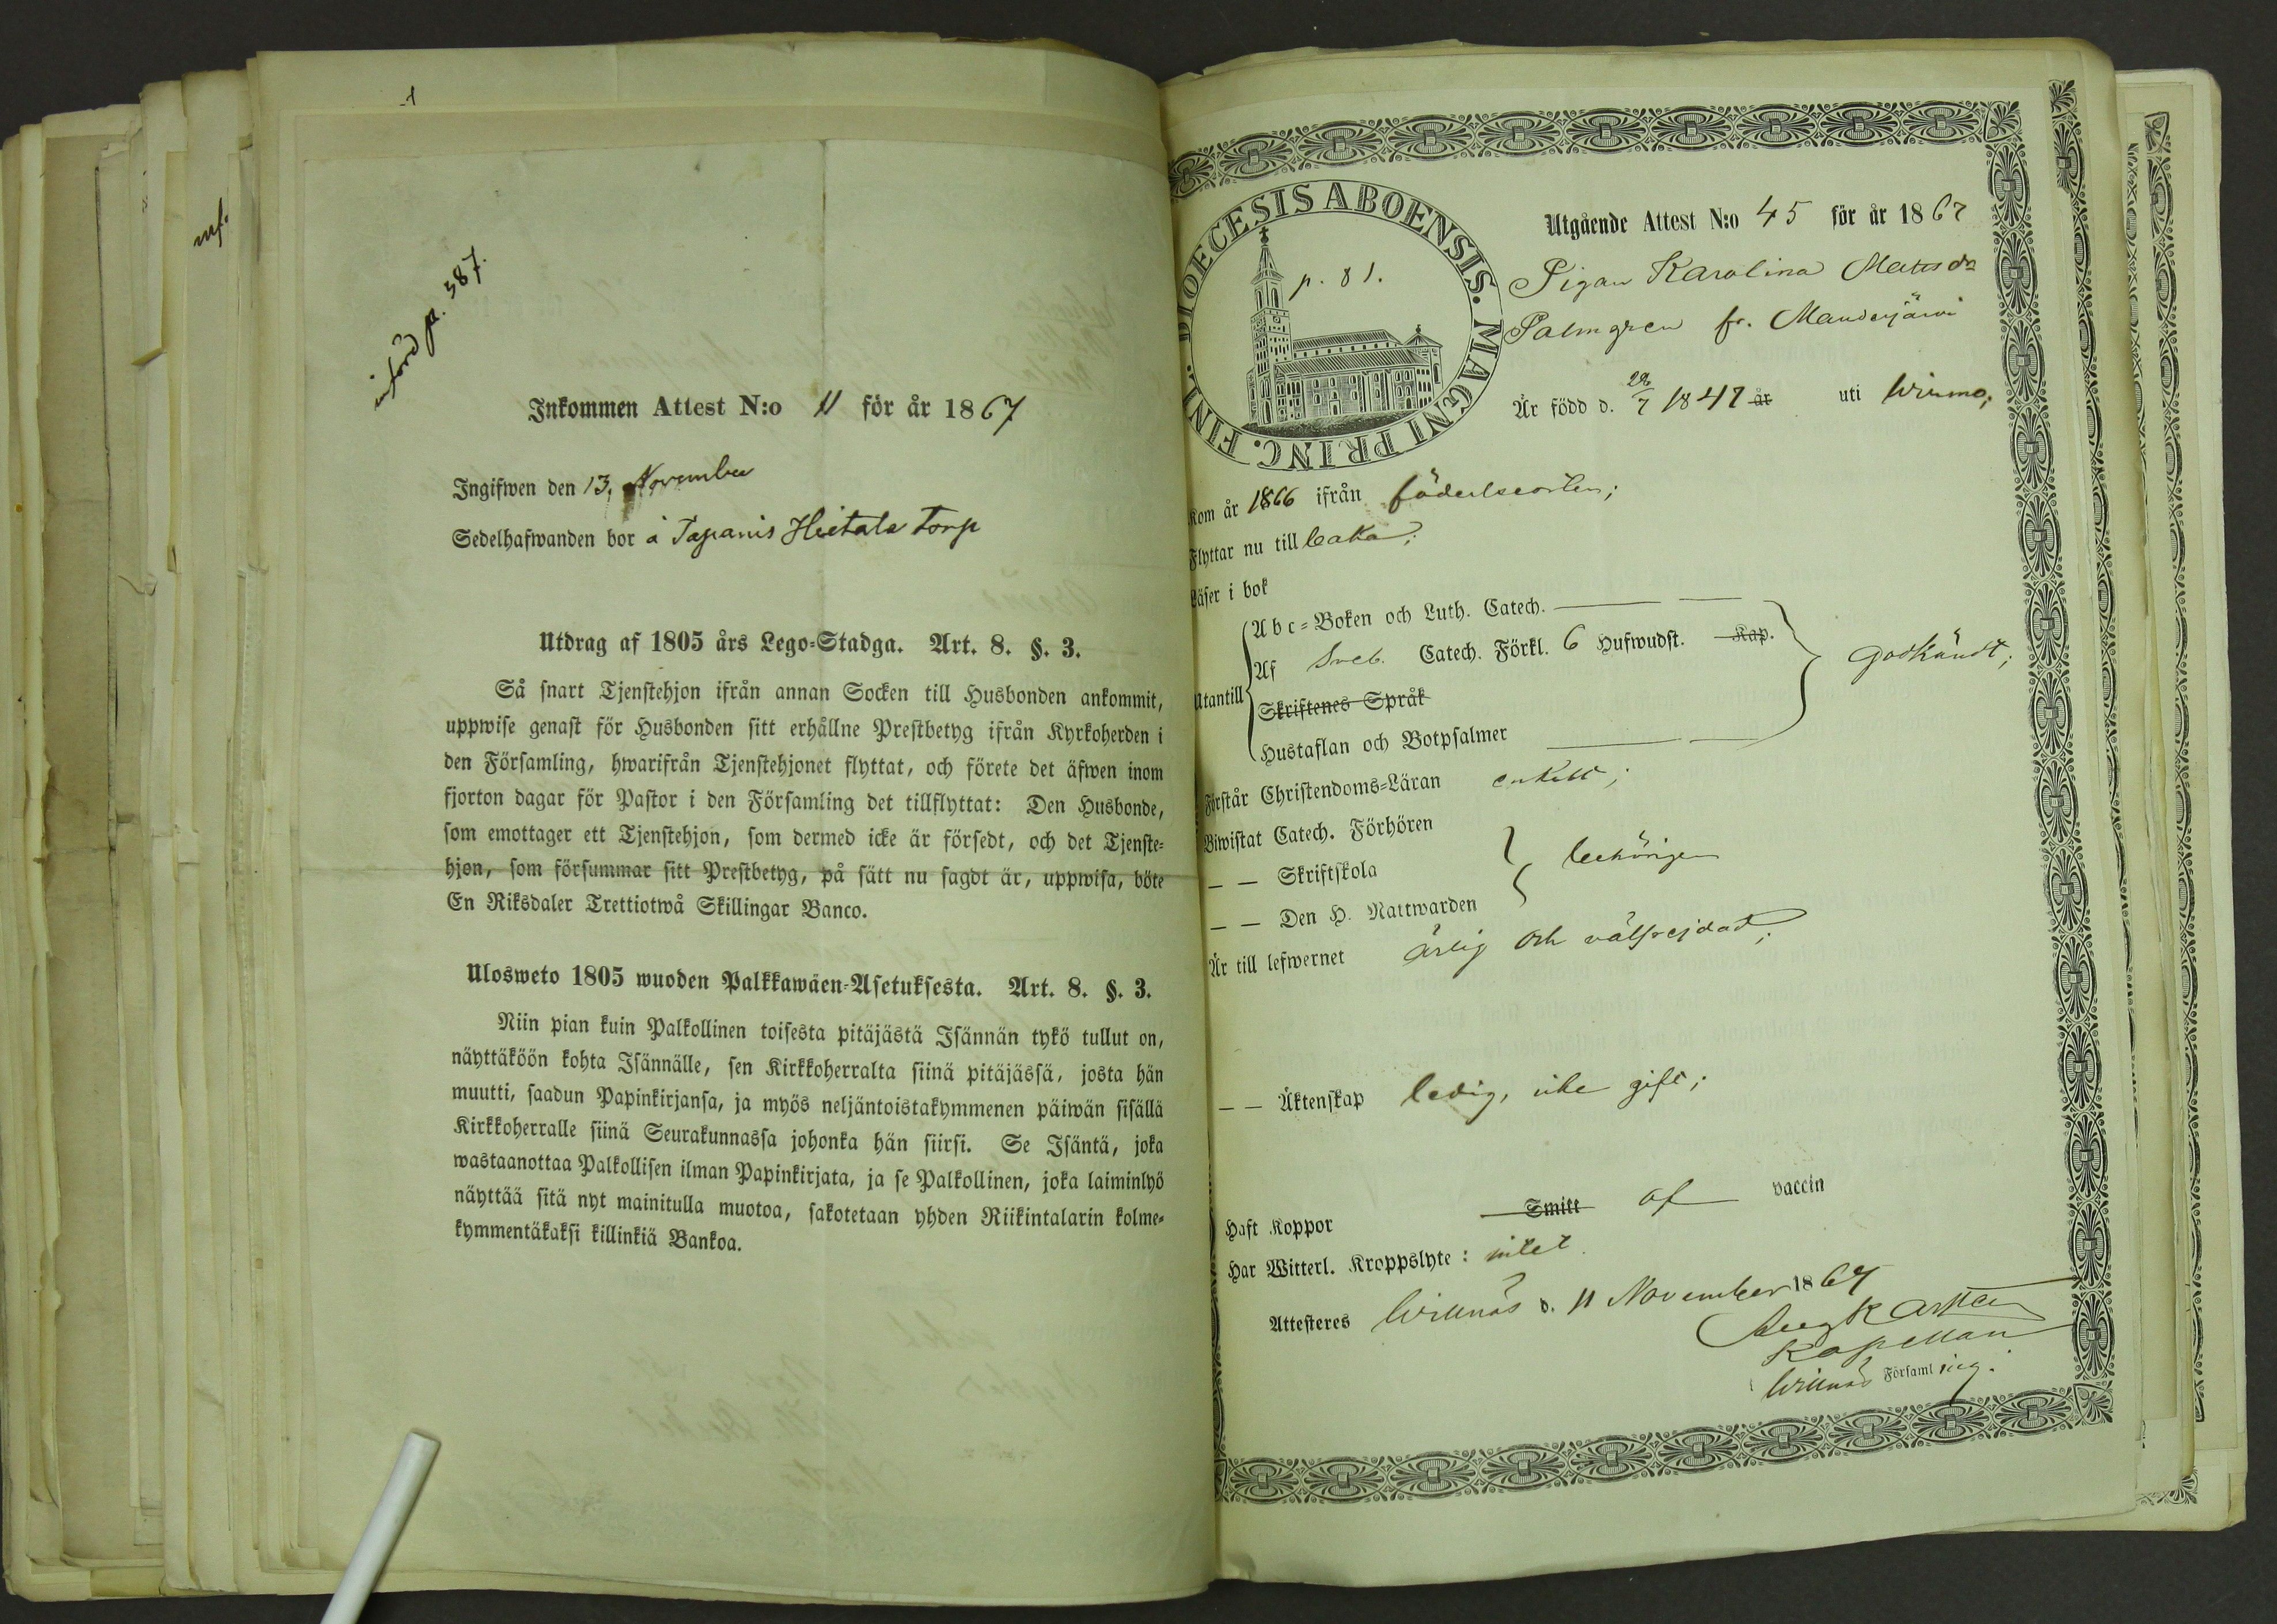 mf.
införd p. 387.
Inkommen Attest N:o 11 för år 1867
Ingifwen den 13. November
Sedelhafwanden bor å Tapanis Hietala torp
Utdrag af 1805 års Lego-Stadga. Art. 8. §. 3.
Så snart Tjenstehjon ifrån annan Socken till Husbonden ankommit,
uppwise genast för Husbonden sitt erhållne Prestbetyg ifrån Kyrkoherden i
den Församling, hwarifrån Tjenstehjonet flyttat, och förete det äfwen inom
fjorton dagar för Pastor i den Församling det tillflyttat: Den Husbonde,
som emottager ett Tjenstehjon, som dermed icke är försedt, och det Tjenste-
hjon, som försummar sitt Prestbetyg, på sätt nu sagdt är, uppwisa, böte
En Riksdaler Trettiotwå Skillingar Banco.
Ulosweto 1805 wuoden Palkkawäen-Asetuksesta. Art. 8. §. 3.
Niin pian kuin Palkollinen toisesta pitäjästä Isännän tykö tullut on,
näyttäköön kohta Isännälle, sen Kirkkoherralta siinä pitäjässä, josta hän
muutti, saadun Papinkirjansa, ja myös neljäntoistakymmenen päiwän sisällä
Kirkkoherralle siinä Seurakunnassa johonka hän siirsi. Se Isäntä, joka
wastaanottaa Palkollisen ilman Papinkirjata, ja se Palkollinen, joka laiminlyö
näyttää sitä nyt mainitulla muotoa, sakotetaan yhden Riikintalarin kolme-
kymmentäkaksi killinkiä Bankoa.
DIOECESIS ABOENSIS. MAGNI PRINC. FINL.
p. 81.
Utgående Attest N:o 45 för år 1867
Pigan Karolina Mattsdr
Palmgren fr.
Är född d. 28/7 1847 år uti Wirmo;
Kom år 1866 ifrån födelseorten;
Flyttar nu till
Läser i bok
Utantill
Abc-Boken och Luth. Catech.
Af Sveb. Catech. Förkl. 6 Hufwudst. Kap.
Skriftenes Språk
Hustaflan och Botpsalmer
godkändt;
Förstår Christendoms-Läran enkelt;
Biwistat Catech. Förhören
— — Skriftskola
— — Den H. Nattwarden
behörigen
Är till lefwernet ärlig och välfrejdad;
— — Äktenskap ledig, icke gift;
Haft Koppor Smitt af vaccin
Har Witterl. Kroppslyte: intet.
Attesteres Willnäs d. 11 November 1867
Aug Karsten
Kapellan
Willnäs Församling.